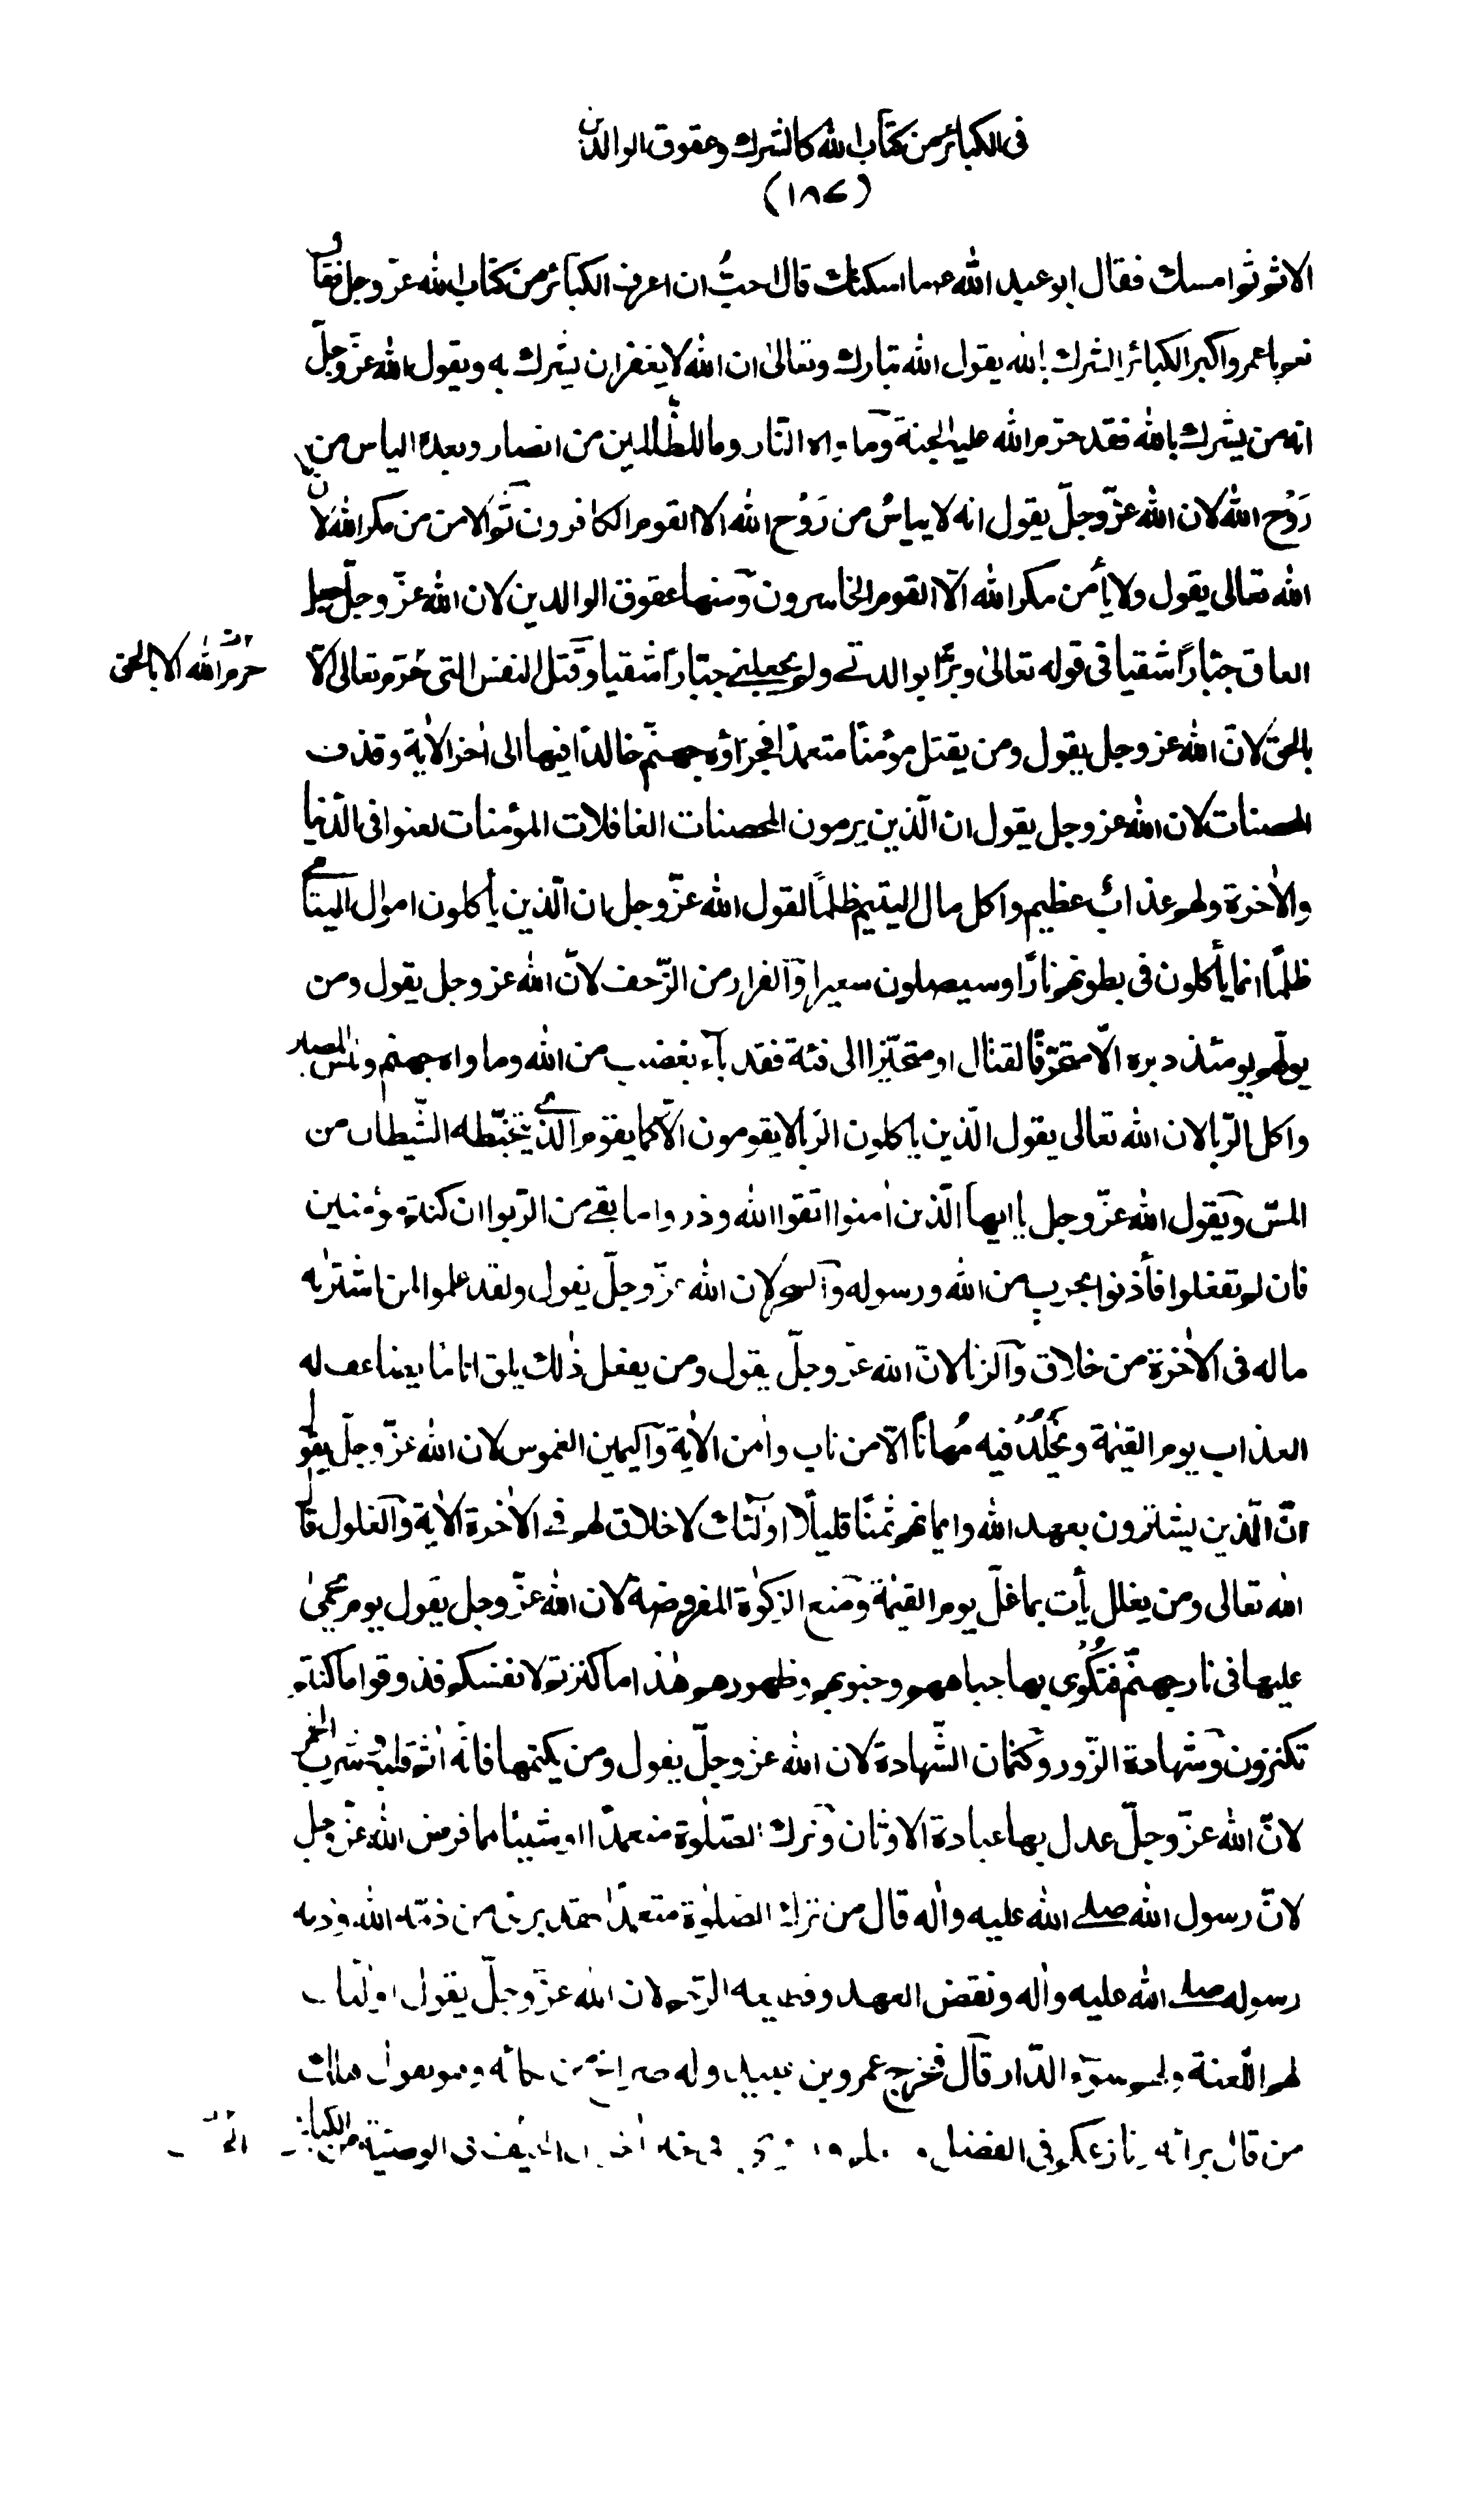 فى الكبائر من كتاب الله كالشرك وعقوق الوالدين
(١٨٧)
الاثم ثم امسك فقال ابو عبد الله ع ما اسكتك قال احبُّ ان اعرف الكبائر من كتاب الله عزّ وجل فقال
نعم يا عمرو اكبر الكبائر الشرك بالله يقول الله تبارك وتعالىٰ ان الله لا يغفر ان يشرك به ويقول الله عزّ وجلّ
انه من يشرك بالله فقد حرّم الله عليه الجنة وماواه النّار وما للظّالمين من انصار وبعده الياس من
رَوْح الله لان الله عزّ وجلّ يقول انه لا يياسُ من رَوْح الله الا القوم الكافرون ثم الامن من مكر الله لان
الله تعالى يقول ولا يأمن مكر الله الّا القوم الخاسرون ومنها عقوق الوالدين لان الله عزّ وجلّ جعل
العاق جبّاراً شقيا فى قوله تعالىٰ وبرًّا بوالدتے ولم يجعلنے جبّاراً شقيا وقتل النفس التى حرّم تعالى الّا
حرّم الله الا بالحق
بالحق لانّ الله عز وجل يقول ومن يقتل مؤمنًا متعمدًا فجزاؤه جهنّم خالدًا فيها الى اٰخر الاٰية وقذف
المحصنات لان الله عز وجل يقول ان الّذين يرمون المحصنات الغافلات المؤمنات لعنوا فى الدّنيا
والاٰخرة ولهم عذابٌ عظيم واكل مال اليتيم ظلمًا لقول الله عزّ وجل ان الّذين يأكلون اموال اليتامےٰ
ظلمًا انما يأكلون فى بطونهم نارًا وسيصلون سعيرا والفرار من الزّحف لانّ الله عز وجل يقول ومن
يولّهم يومئذ دبره الّا متحرّفًا لقتال او متحيّزا الى فئة فقد بآء بغضب من الله وماواه جهنم وبئس المصير
واكل الرّبا لان الله تعالى يقول الّذين ياكلون الرّبا لا يقومون الّا كما يقوم الّذے يتخبّطه الشّيطان من
المسّ ويقول الله عزّ وجل يا ايها الّذين اٰمنوا اتقوا الله وذروا ما بقے من الرّبوا ان كنتم مؤمنين
فان لم تفعلوا فأذنوا بحرب من الله ورسوله والسحر لان الله عزّ وجلّ يقول ولقد علموا لمن اشتراٰه
ماله فى الاٰخرة من خلاق والزنا لانّ الله عزّ وجلّ يقول ومن يفعل ذٰلك يلق اثامًا يضاعف له
العذاب يوم القيٰمة ويَخْلُدْ فيه مُهانًا الّا من تاب واٰمن الاٰية واليمين الغموس لان الله عزّ وجلّ يقول
انّ الّذين يشترون بعهد الله وايمانهم ثمنًا قليلًا اولٰئك لا خلاق لهم فے الاٰخرة الاٰية والغلول قال
الله تعالى ومن يغلل يأت بما غلّ يوم القيٰمة ومنع الزكوٰة المفروضة لان الله عزّ وجل يقول يوم يحمىٰ
عليها فى نار جهنّم فَتُكْوٰى بها جباههم وجنوبهم وظهورهم هٰذا ما كنزتم لانفسكم فذوقوا ما كنتم
تكنزون وشهادة الزّور وكتمان الشّهادة لان الله عز وجلّ يقول ومن يكتمها فانه اٰثم قلبه وشرب الخمر
لانّ الله عزّ وجلّ عدل بها عبادة الاوثان وترك الصّلٰوة متعمدًا او شيئًا مما فرض الله عزّ وجل
لانّ رسول الله صلے الله عليه واٰله قال من ترك الصّلٰوة متعمدًا فقد برئ من ذمّة الله وذمة
رسوله صلے الله عليه واٰله ونقض العهد وقطيعة الرّحم لان الله عزّ وجلّ يقول اولٰئك
لهم اللّعنة ولهم سوٓء الدّار قال فخرج عمرو بن عبيد وله صراخ من بكائه وهو يقول هلك
من قال برأيه ونازعكم فى الفضل و فى الوصية من الكبائر